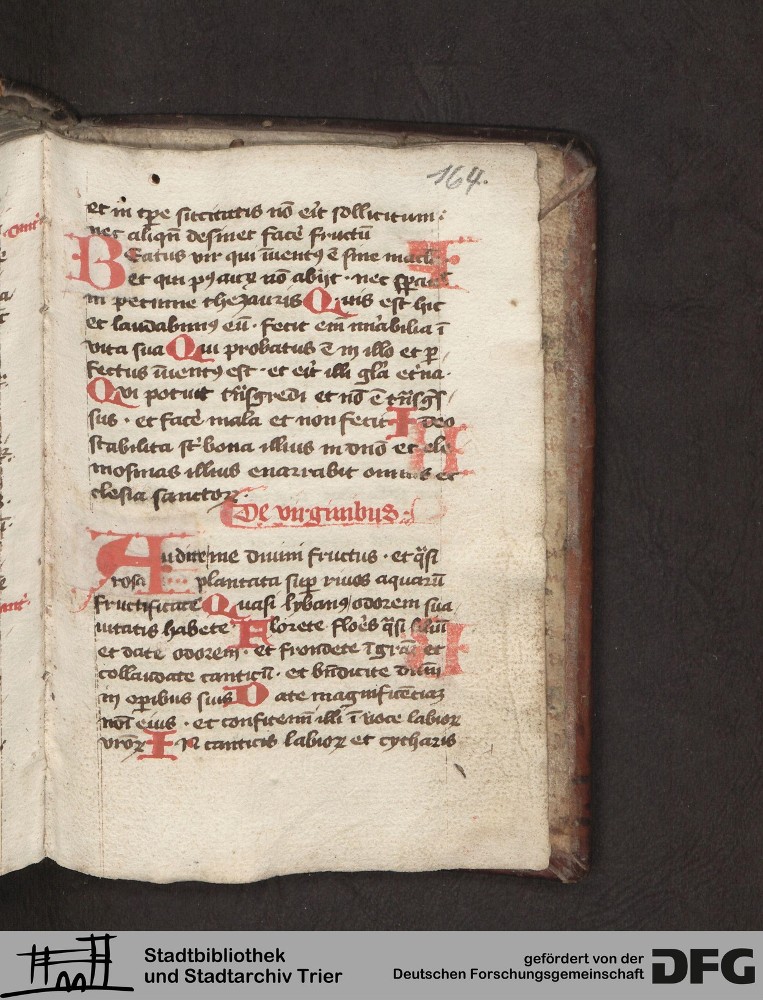 164.
et in tp̄e siccitatis nō eīt sollicitum :
nec aliqn̄ desinet face fructū
Beatus vir qui īuentꝯ ē sine mac̄l
et qui pꝯ auꝝ nō abijt · nec sꝑa
in pecunie thezauris Quis est hic
et laudabimꝯ eū · fecit em̄ mīabilia ī
vita sua Qui probatus ē in illo et ꝑ
fectus īuentꝯ est · et eīt illi gl̄a et̄na ·
Qui potuit tn̄sgredi et nō ē tn̄sgs̄
sus · et face mala et non fecit I deo
stabilita st̄ bona illius in dn̄o et ele
mosinas illius enarrabit omnis ec
clesia sanctoꝝ ·
De virginibus :
Audite me diuini fructus · et q̄si
rosa plantata sup̄ riuos aquarū
fructificate Quasi lybanꝯ odorem sua
uitatis habete Florete flōes q̄si liliū
et date odorem · et frondete ī gr̄a et
collaudate canticū · et bn̄dicite dn̄m
in oꝑibus suis Date magnificētiaꝫ
nōi eius · et confitemi illi ī uoce labioꝝ
vr̄oꝝ In canticis labioꝝ et cytharis
Stadtbibliothek
und Stadtarchiv Trier
gefördert von der
Deutschen Forschungsgemeinschaft
DFG